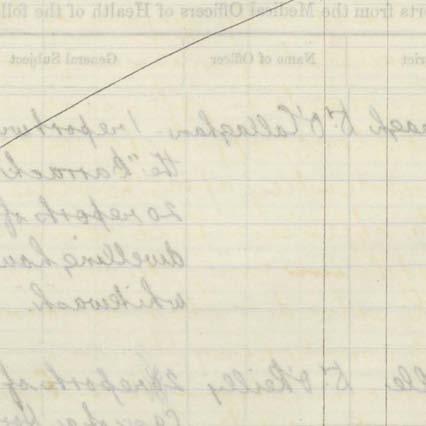 rts from the Medical Officers of Health of the follo
trict Name of Officer General Subject
nagh Dr O'Callaghan 1 report
the "barrack
20 reports of
dwelling hou
whitewash.
lle Dr O'Reilly reports of